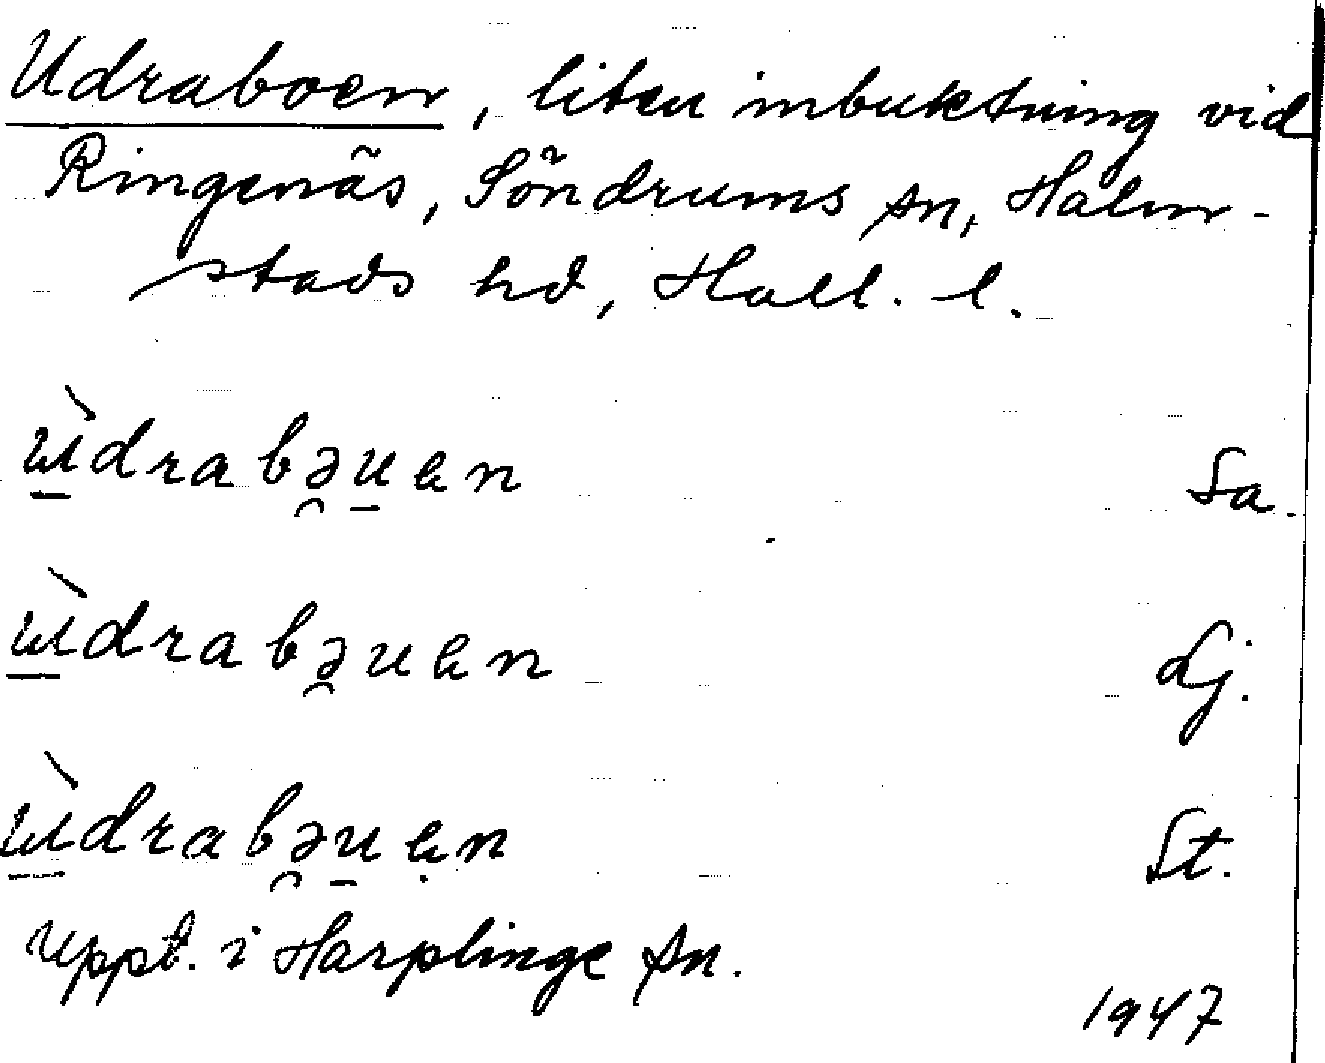 Udraboen, liten inbuktning vid
Ringenäs, Söndrums sn, Halm-
stads hd, Hall. l.
ɯ̱̀drabə̯u̱en Sa.
ɯ̱̀drabə̯uen Lj.
ɯ̱̀drabə̯u̱ẹn St.
Uppt. i Harplinge sn.
1947